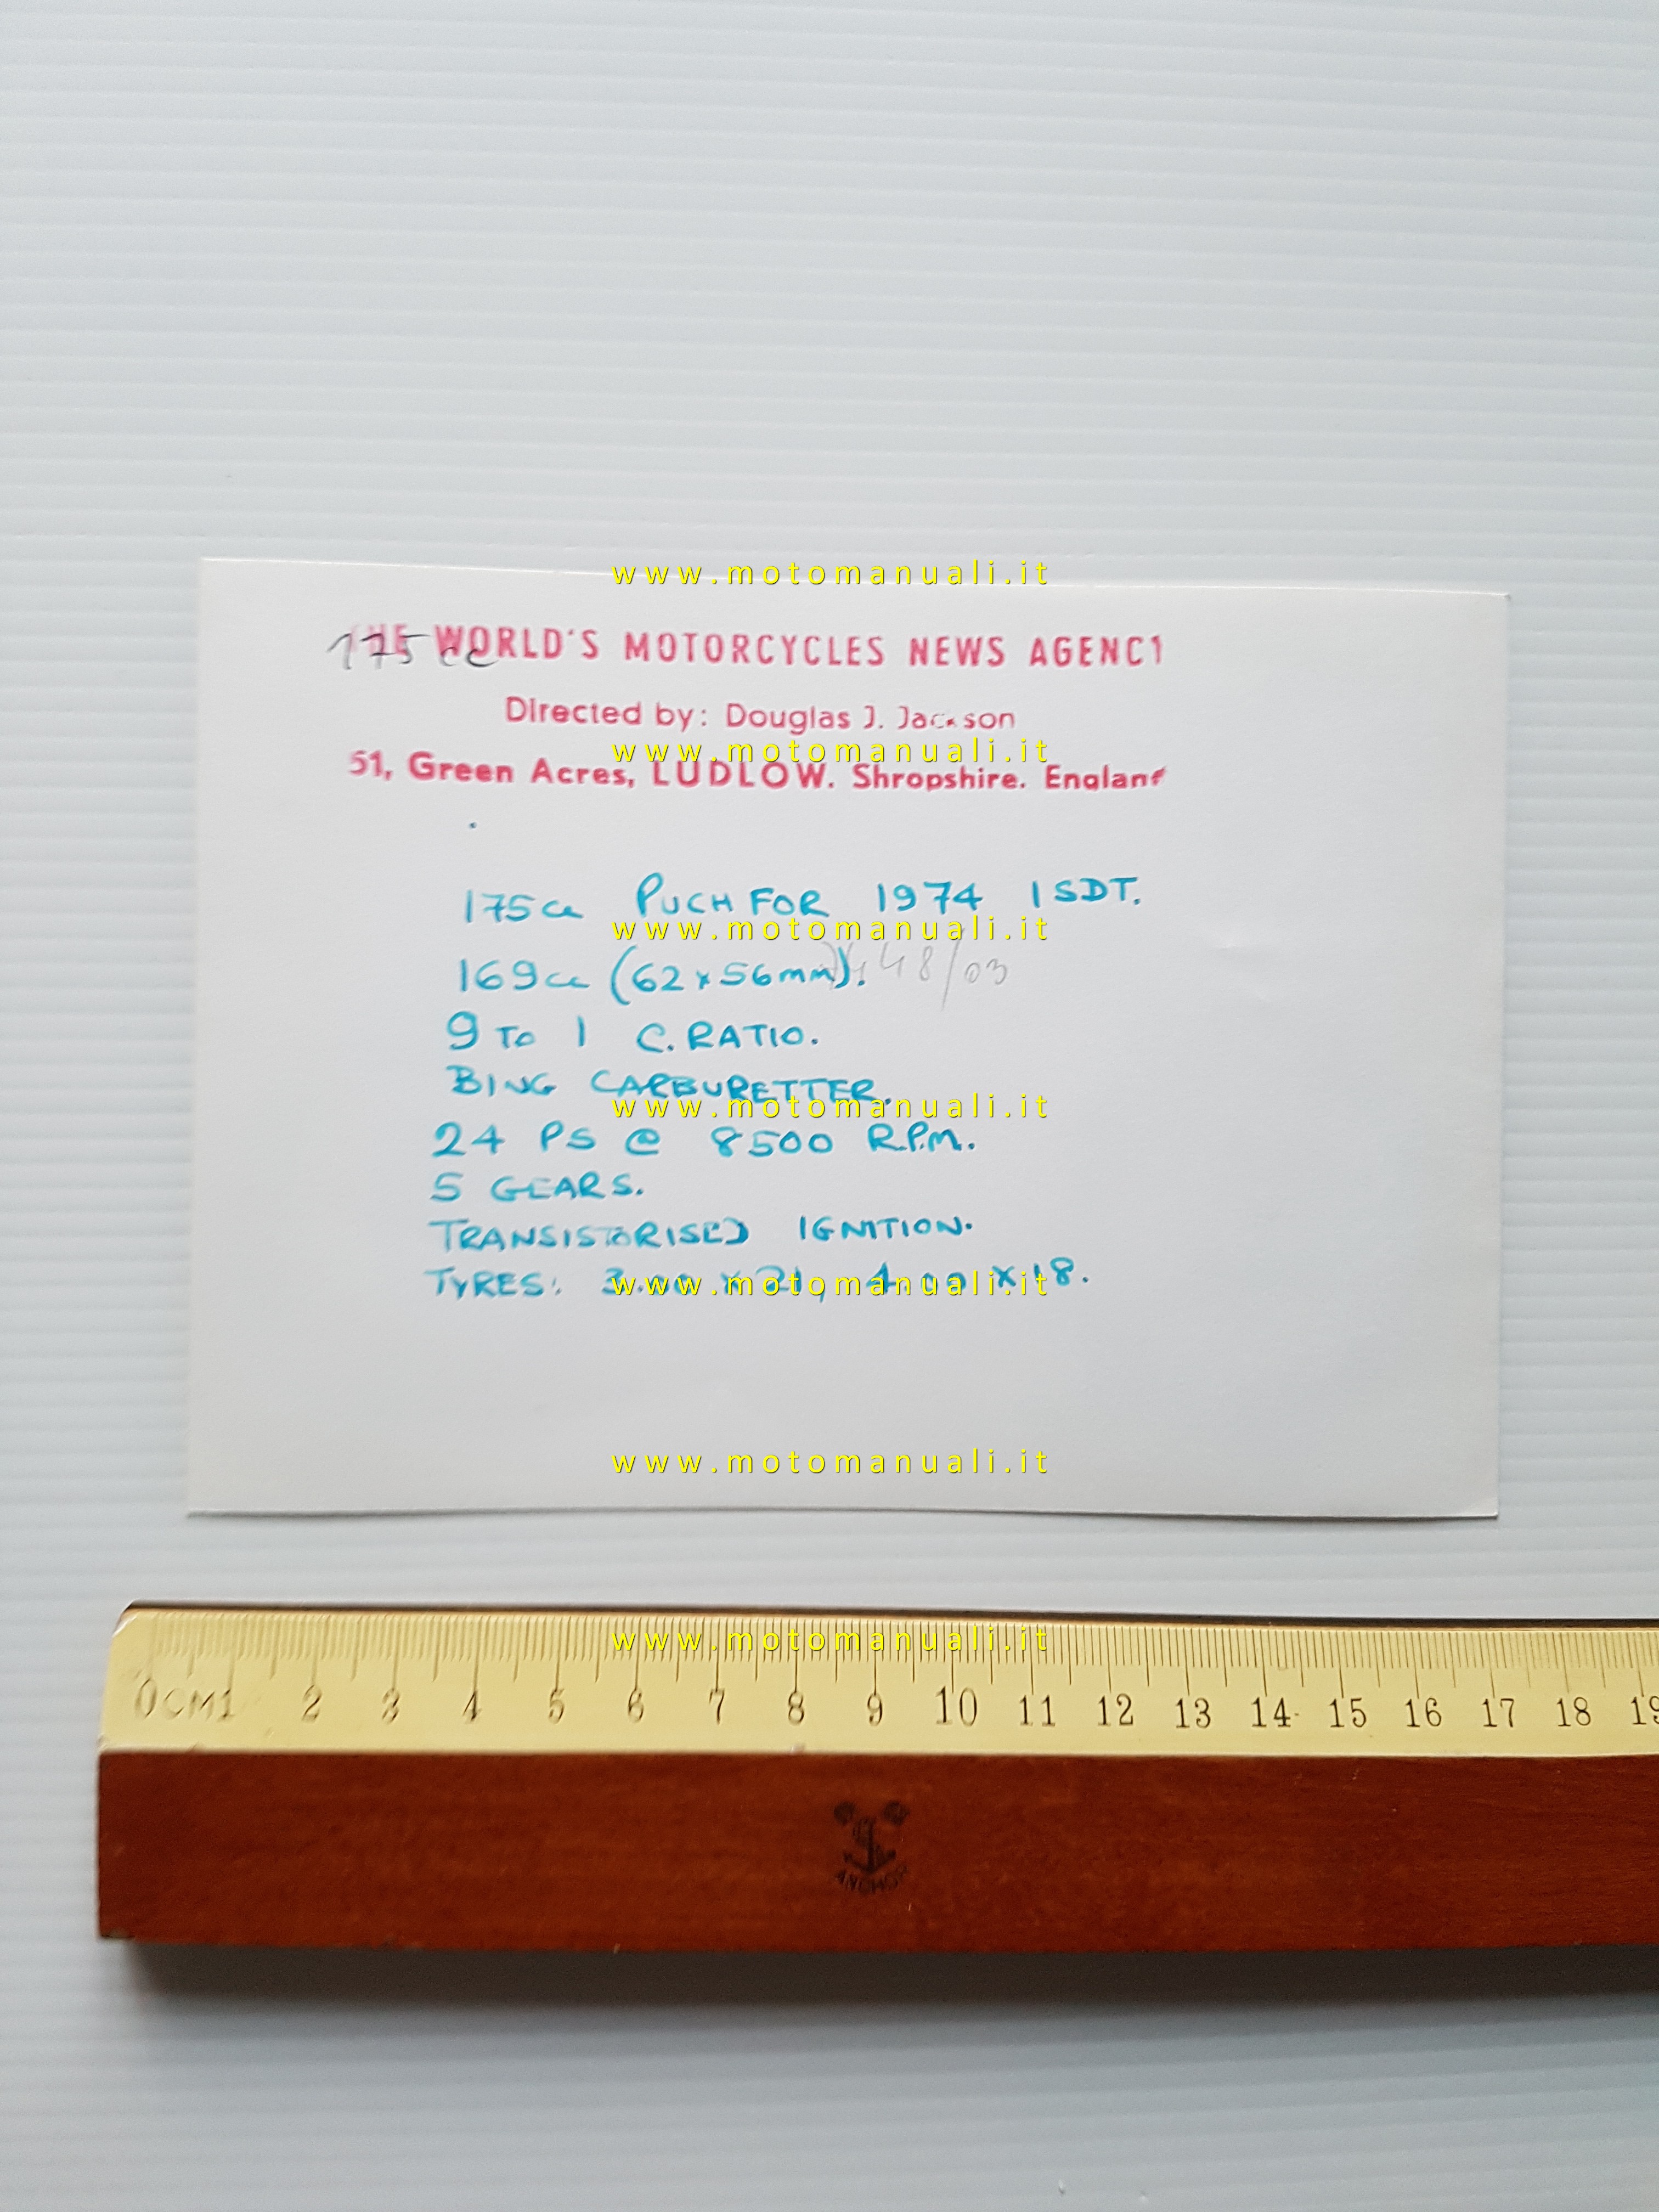 www.motomanuali.it
THE WORLD'S MOTORCYCLES NEWS AGENCY
175 cc
Directed by: Douglas J. Jackson
www.motomanuali.it
51, Green Acres, LUDLOW. Shropshire. England
175cc PUCH FOR 1974 ISDT.
www.motomanuali.it
169cc (62x56mm). 48/03
9 TO 1 C. RATIO.
BING CARBURETTER.
www.motomanuali.it
24 PS @ 8500 R.P.M.
5 GEARS.
TRANSISTORISED IGNITION.
TYRES: 3.00 x 21, 4.00 x 18.
www.motomanuali.it
www.motomanuali.it
www.motomanuali.it
0CM1 2 3 4 5 6 7 8 9 10 11 12 13 14 15 16 17 18 19
ANCHOR